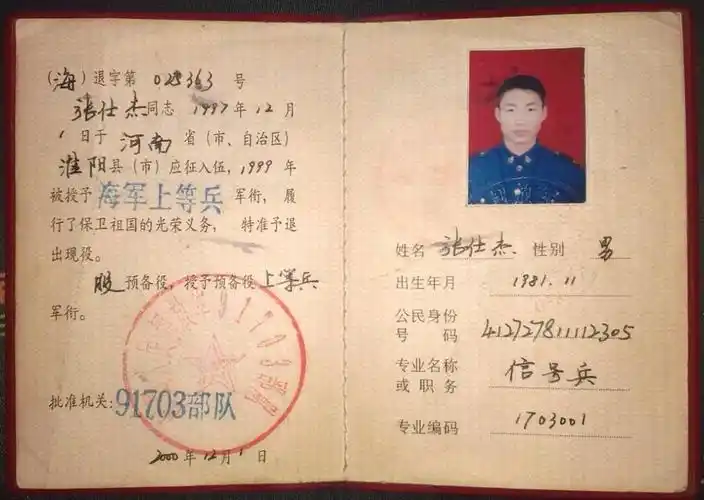 (海)退字第 025363 号
张仕杰同志 1997年12月
1日于 河南 省(市、自治区)
淮阳县(市)应征入伍,1999年
被授予 海军上等兵 军衔,履
行了保卫祖国的光荣义务,特准予退
出现役。
服预备役,授予预备役上等兵
军衔。
批准机关:91703部队
2000年12月1日
姓名 张仕杰. 性别 男
出生年月 1981.11
公民身份
号码 412727811112305
专业名称
或职务 信号兵
专业编码 1703001